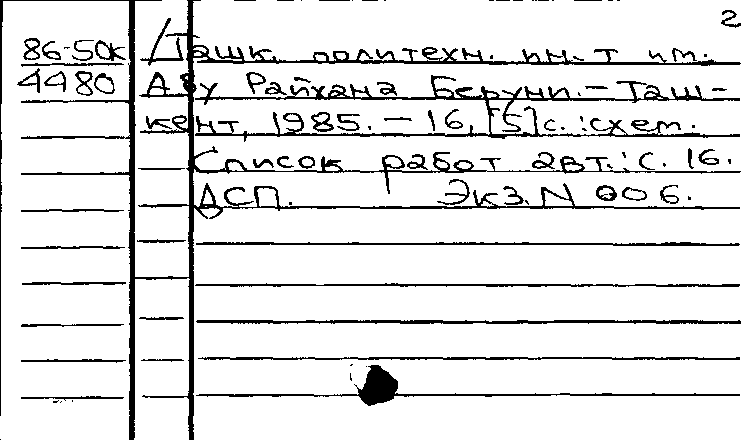 2
86-50к /Ташк. политехн. ин-т им.
4480 Абу Райхана Беруни.- Таш-
кент, 1985. - 16, [5] с. : схем.
Список работ авт.: с. 16.
ДСП. Экз. N 006.